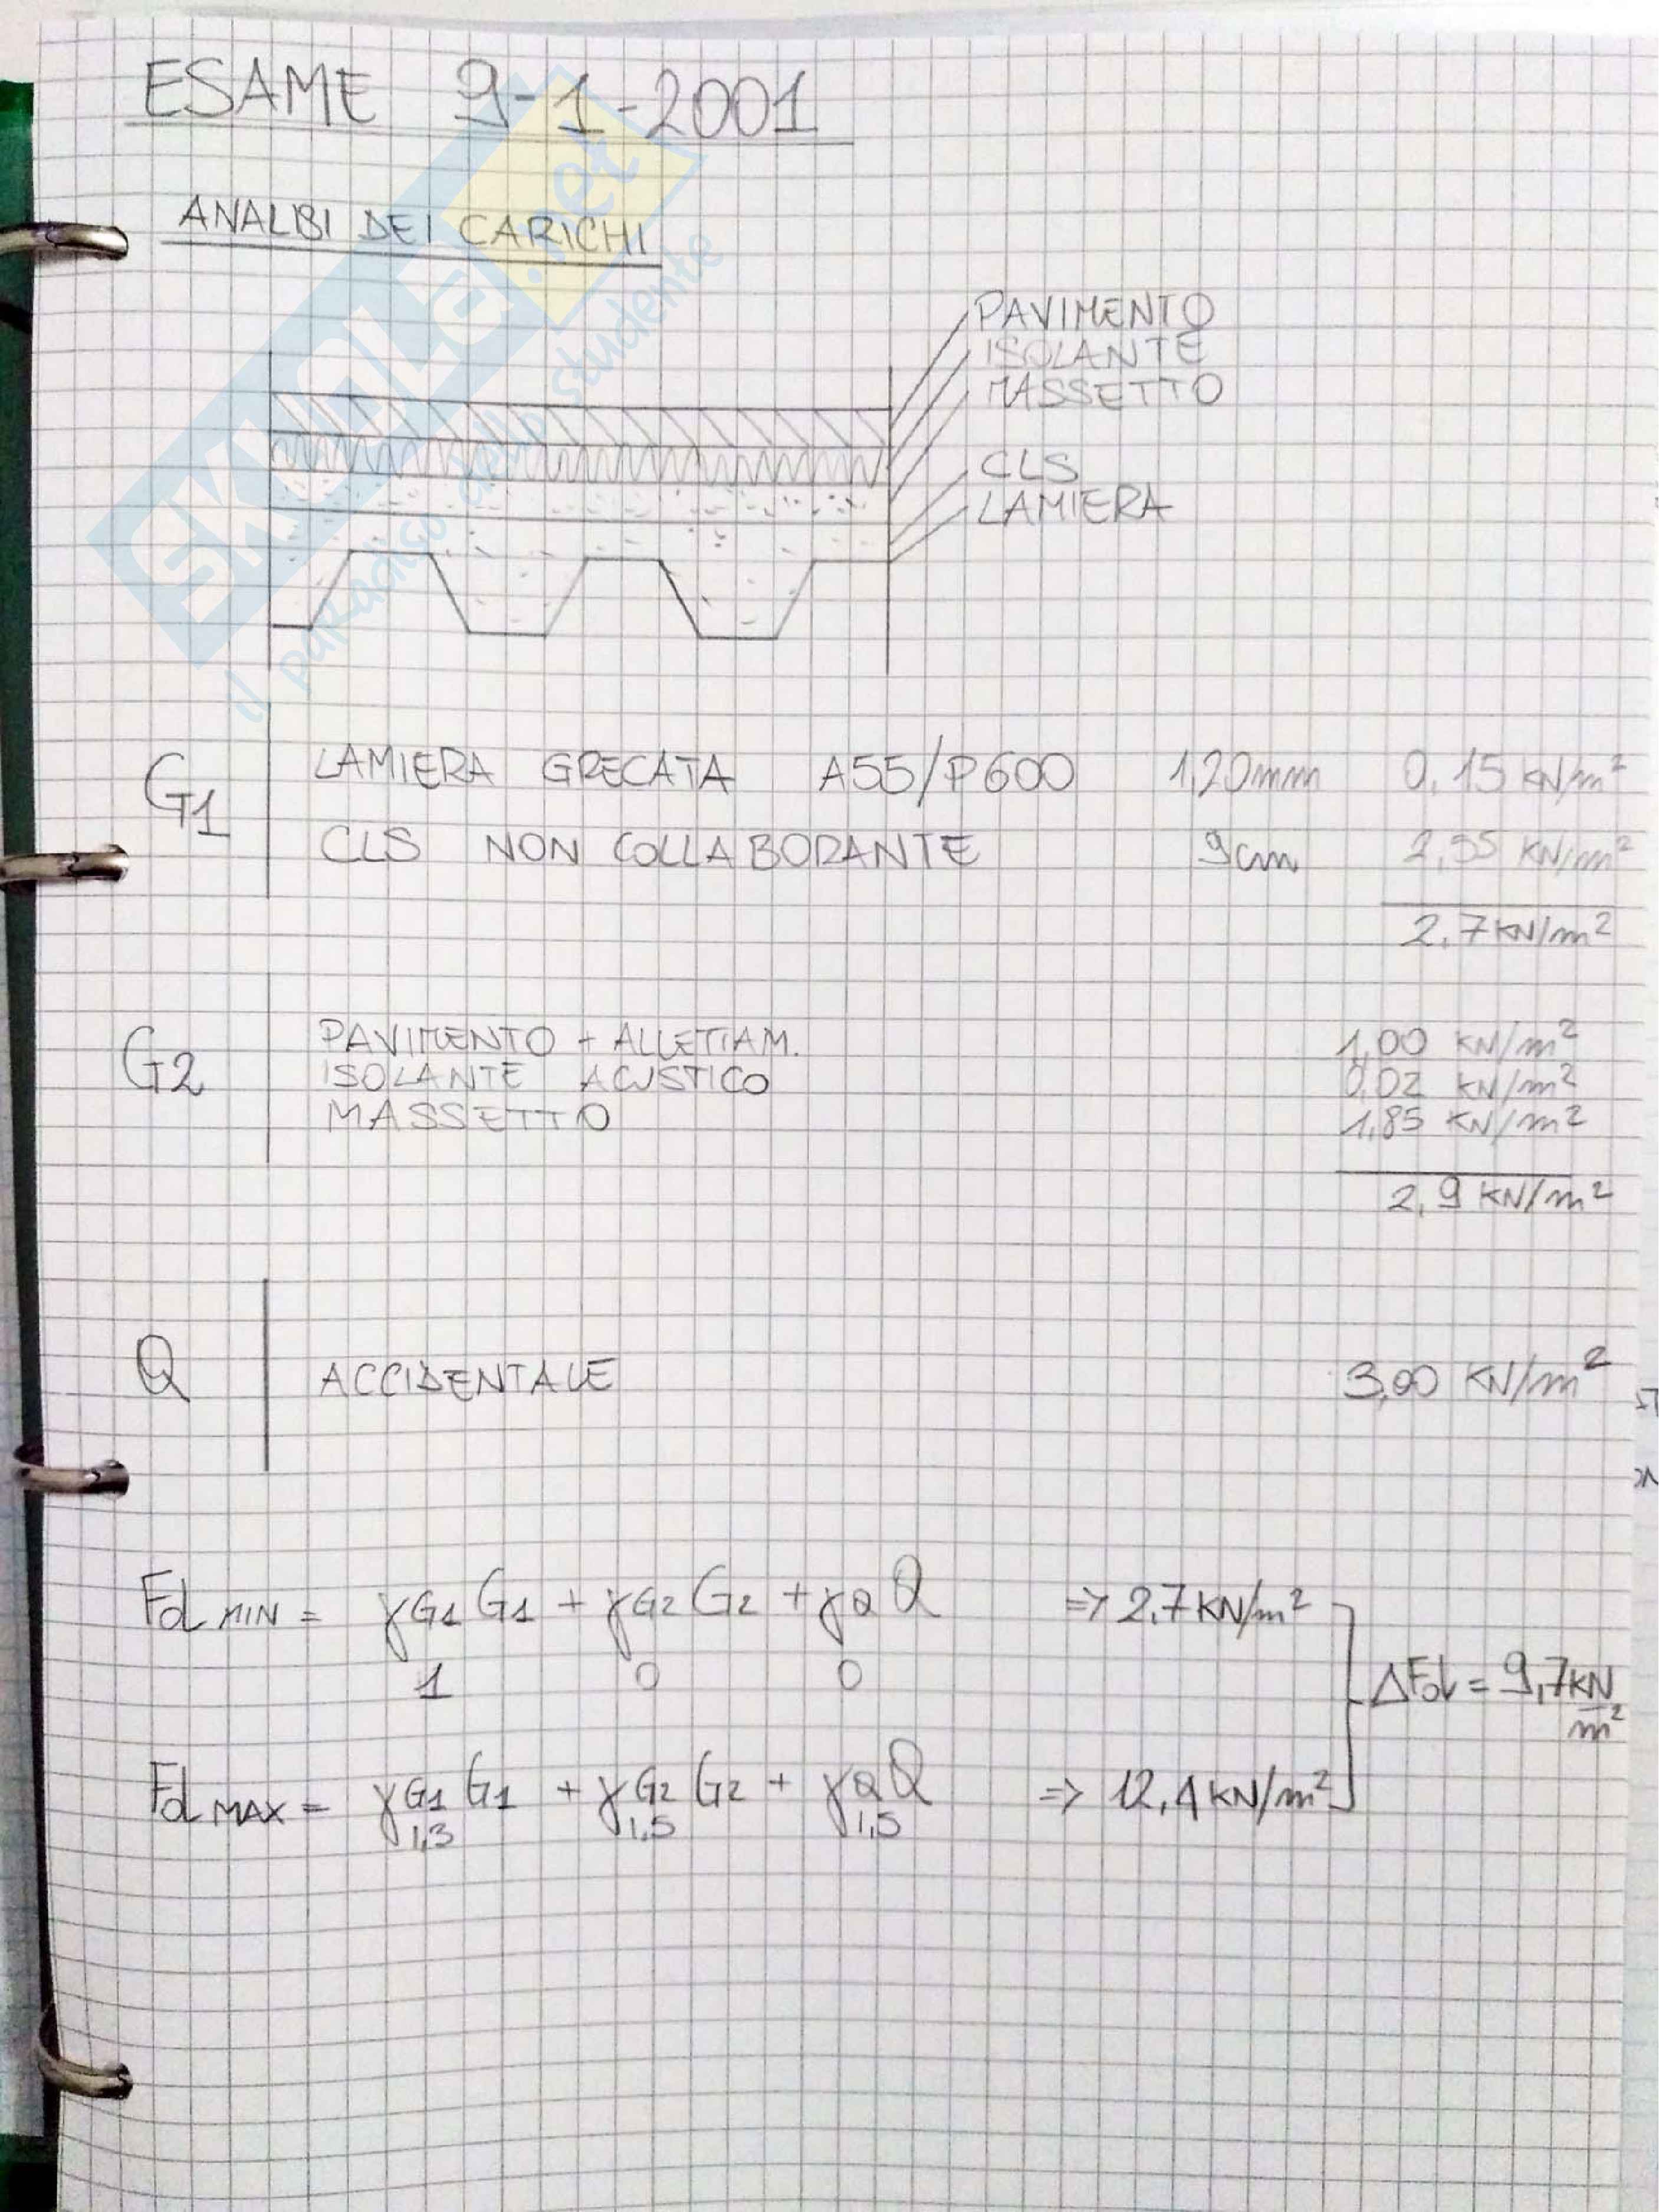 ESAME 9-1-2001
ANALISI DEI CARICHI
PAVIMENTO
ISOLANTE
MASSETTO
CLS
LAMIERA
G1
LAMIERA GRECATA A55/P600 1,20mm 0,15 KN/m²
CLS NON COLLABORANTE 9cm 2,55 KN/m²
2,7 KN/m²
G2
PAVIMENTO + ALLETTAM. 1,00 KN/m²
ISOLANTE ACUSTICO 0,02 KN/m²
MASSETTO 1,85 KN/m²
2,9 KN/m²
Q ACCIDENTALE 3,00 KN/m²
Fd MIN = γG1 G1 + γG2 G2 + γQ Q => 2,7 KN/m²
1 0 0
ΔFd = 9,7 KN/m²
Fd MAX = γG1 G1 + γG2 G2 + γQ Q => 12,4 KN/m²
1,3 1,5 1,5
SKUOLA.net
il paradiso dello studente